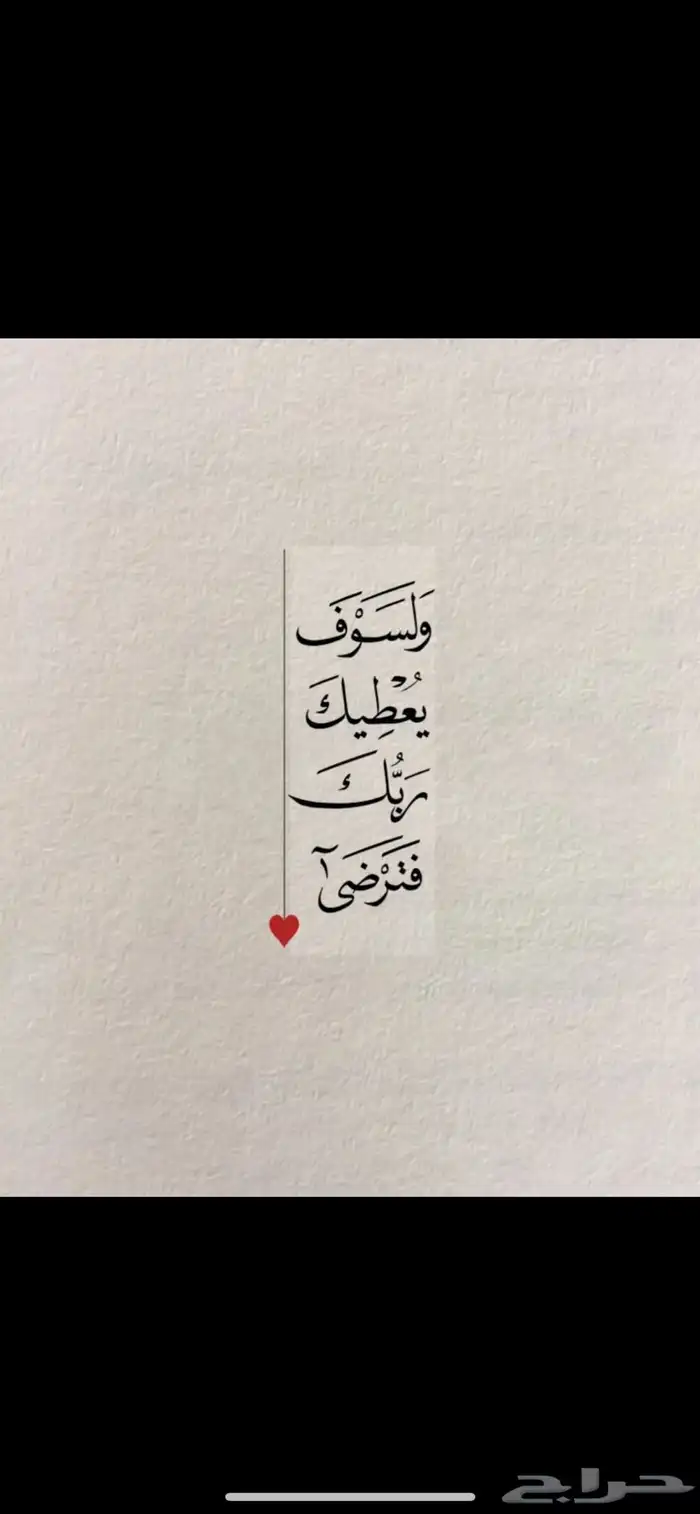 وَلَسَوْفَ
يُعْطِيكَ
رَبُّكَ
فَتَرْضَىٰٓ
حراج